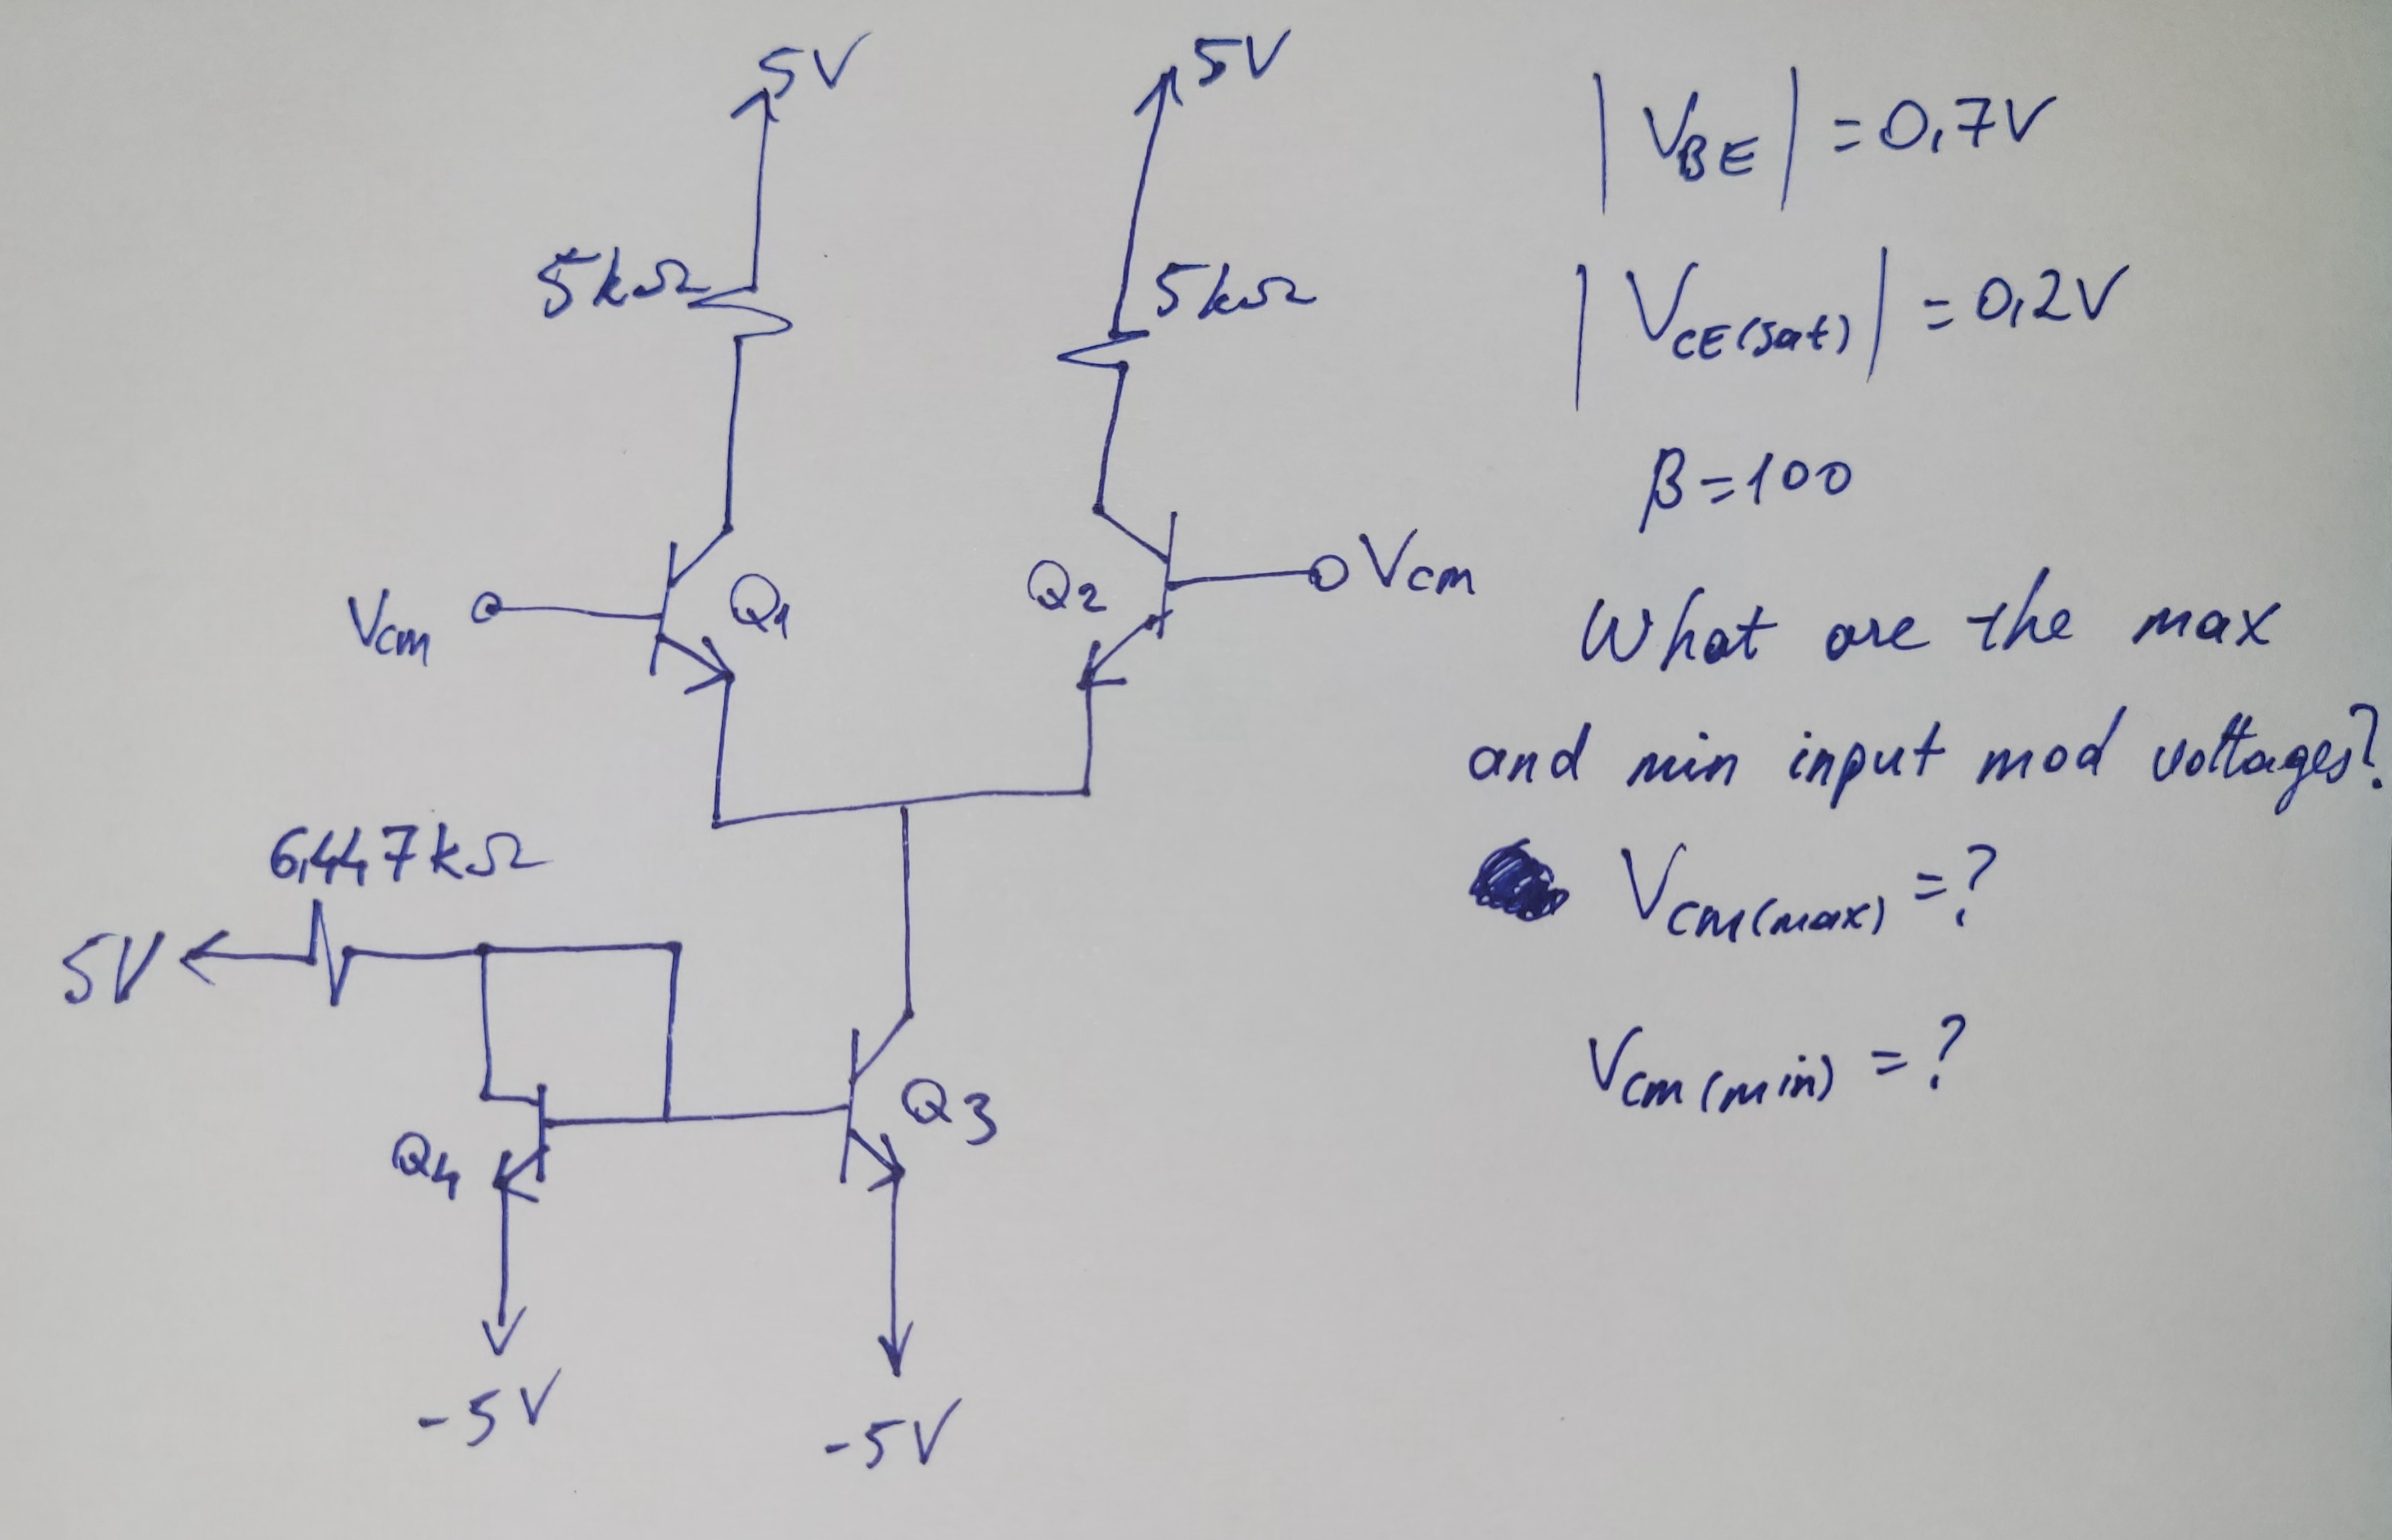 5V
5V
5kΩ
5kΩ
Vcm
Q1
Q2
Vcm
6,447kΩ
5V
Q4
Q3
-5V
-5V
|VBE| = 0,7V
|VCE(sat)| = 0,2V
β=100
What are the max
and min input mod voltages?
Vcm(max) =?
Vcm(min) =?